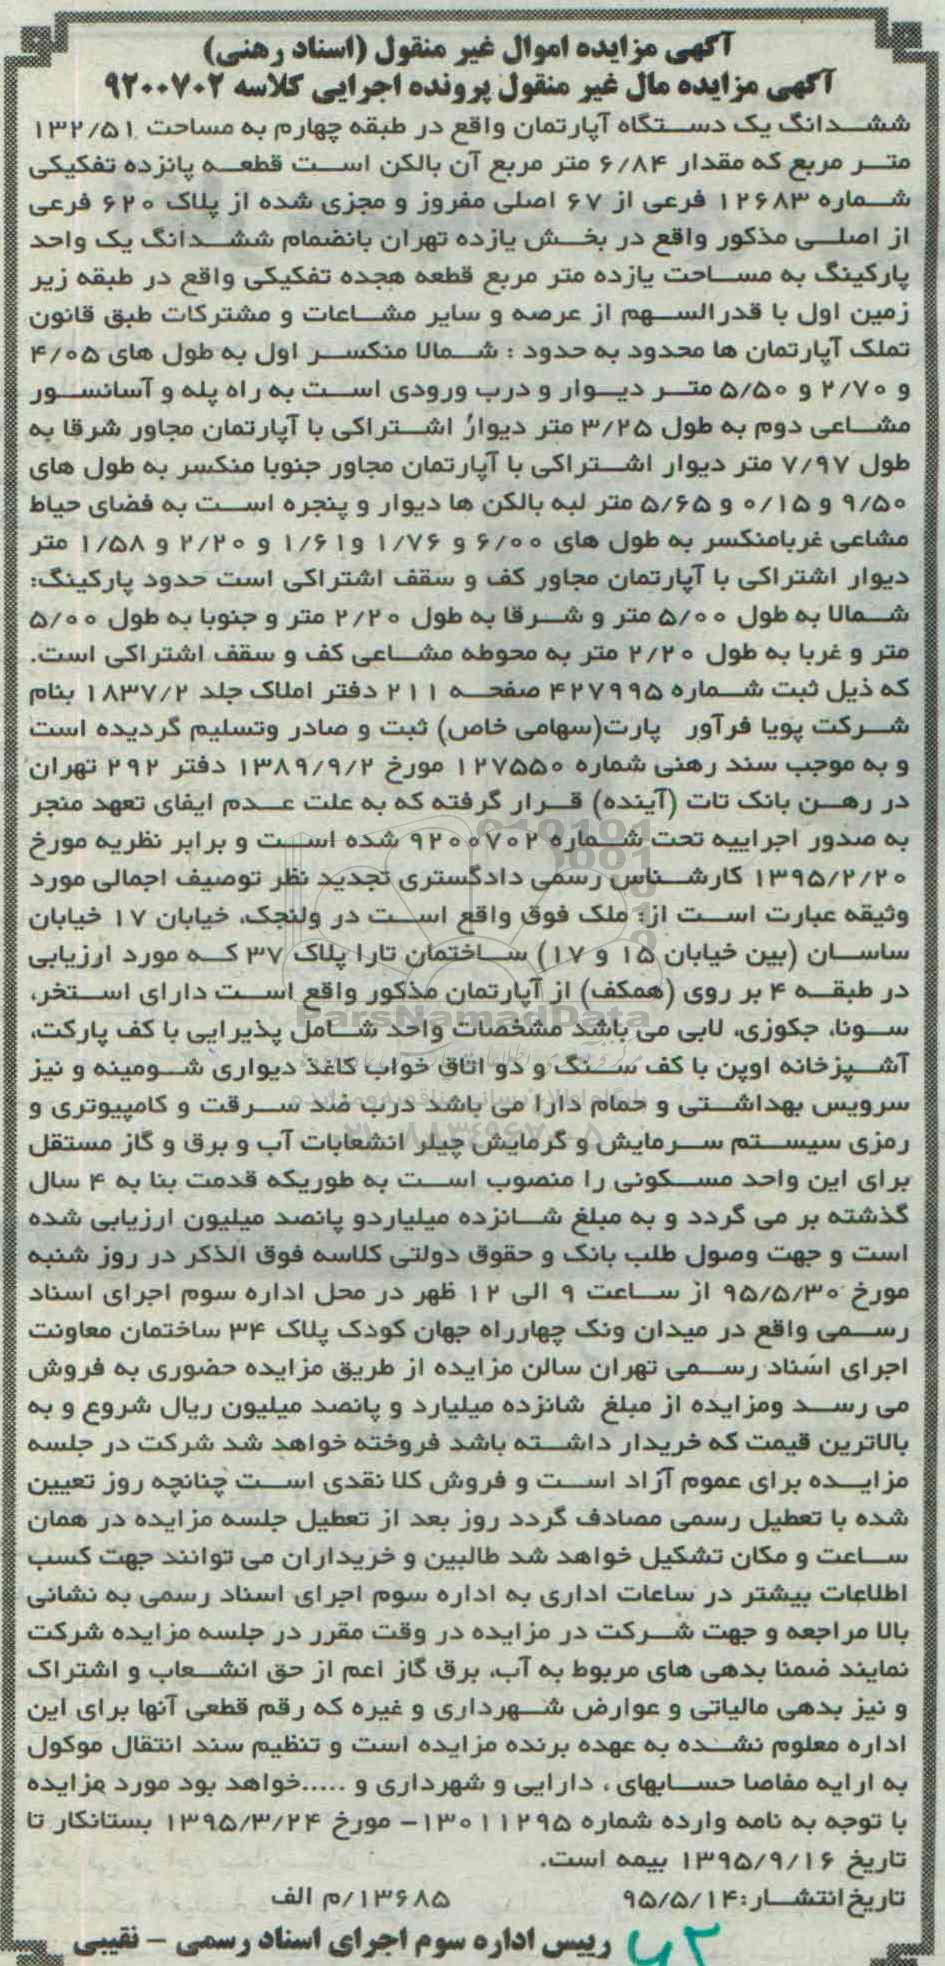 آگهی مزایده اموال غیر منقول (اسناد رهنی)
آگهی مزایده مال غیر منقول پرونده اجرایی کلاسه ۹۲۰۰۷۰۲
ششدانگ یک دستگاه آپارتمان واقع در طبقه چهارم به مساحت ۱۳۲/۵۱
متر مربع که مقدار ۶/۸۴ متر مربع آن بالکن است قطعه پانزده تفکیکی
شماره ۱۲۶۸۳ فرعی از ۶۷ اصلی مفروز و مجزی شده از پلاک ۶۲۰ فرعی
از اصلی مذکور واقع در بخش یازده تهران بانضمام ششدانگ یک واحد
پارکینگ به مساحت یازده متر مربع قطعه هجده تفکیکی واقع در طبقه زیر
زمین اول با قدرالسهم از عرصه و سایر مشاعات و مشترکات طبق قانون
تملک آپارتمان ها محدود به حدود : شمالا منکسر اول به طول های ۴/۰۵
و ۲/۷۰ و ۵/۵۰ متر دیوار و درب ورودی است به راه پله و آسانسور
مشاعی دوم به طول ۳/۲۵ متر دیوار اشتراکی با آپارتمان مجاور شرقا به
طول ۷/۹۷ متر دیوار اشتراکی با آپارتمان مجاور جنوبا منکسر به طول های
۹/۵۰ و ۰/۱۵ و ۵/۶۵ متر لبه بالکن ها دیوار و پنجره است به فضای حیاط
مشاعی غربامنکسر به طول های ۶/۰۰ و ۱/۷۶ و۱/۶۱ و ۲/۲۰ و ۱/۵۸ متر
دیوار اشتراکی با آپارتمان مجاور کف و سقف اشتراکی است حدود پارکینگ:
شمالا به طول ۵/۰۰ متر و شرقا به طول ۲/۲۰ متر و جنوبا به طول ۵/۰۰
متر و غربا به طول ۲/۲۰ متر به محوطه مشاعی کف و سقف اشتراکی است.
که ذیل ثبت شماره ۴۲۷۹۹۵ صفحه ۲۱۱ دفتر املاک جلد ۱۸۳۷/۲ بنام
شرکت پویا فرآور پارت(سهامی خاص) ثبت و صادر وتسلیم گردیده است
و به موجب سند رهنی شماره ۱۲۷۵۵۰ مورخ ۱۳۸۹/۹/۲ دفتر ۲۹۲ تهران
در رهن بانک تات (آینده) قرار گرفته که به علت عدم ایفای تعهد منجر
به صدور اجراییه تحت شماره ۹۲۰۰۷۰۲ شده است و برابر نظریه مورخ
۱۳۹۵/۲/۲۰ کارشناس رسمی دادگستری تجدید نظر توصیف اجمالی مورد
وثیقه عبارت است از: ملک فوق واقع است در ولنجک، خیابان ۱۷ خیابان
ساسان (بین خیابان ۱۵ و ۱۷) ساختمان تارا پلاک ۳۷ که مورد ارزیابی
در طبقه ۴ بر روی (همکف) از آپارتمان مذکور واقع است دارای استخر،
سونا، جکوزی، لابی می باشد مشخصات واحد شامل پذیرایی با کف پارکت،
آشپزخانه اوپن با کف سنگ و دو اتاق خواب کاغذ دیواری شومینه و نیز
سرویس بهداشتی و حمام دارا می باشد درب ضد سرقت و کامپیوتری و
رمزی سیستم سرمایش و گرمایش چیلر انشعابات آب و برق و گاز مستقل
برای این واحد مسکونی را منصوب است به طوریکه قدمت بنا به ۴ سال
گذشته بر می گردد و به مبلغ شانزده میلیاردو پانصد میلیون ارزیابی شده
است و جهت وصول طلب بانک و حقوق دولتی کلاسه فوق الذکر در روز شنبه
مورخ ۹۵/۵/۳۰ از ساعت ۹ الی ۱۲ ظهر در محل اداره سوم اجرای اسناد
رسمی واقع در میدان ونک چهارراه جهان کودک پلاک ۳۴ ساختمان معاونت
اجرای اسناد رسمی تهران سالن مزایده از طریق مزایده حضوری به فروش
می رسد ومزایده از مبلغ شانزده میلیارد و پانصد میلیون ریال شروع و به
بالاترین قیمت که خریدار داشته باشد فروخته خواهد شد شرکت در جلسه
مزایده برای عموم آزاد است و فروش کلا نقدی است چنانچه روز تعیین
شده با تعطیل رسمی مصادف گردد روز بعد از تعطیل جلسه مزایده در همان
ساعت و مکان تشکیل خواهد شد طالبین و خریداران می توانند جهت کسب
اطلاعات بیشتر در ساعات اداری به اداره سوم اجرای اسناد رسمی به نشانی
بالا مراجعه و جهت شرکت در مزایده در وقت مقرر در جلسه مزایده شرکت
نمایند ضمنا بدهی های مربوط به آب، برق گاز اعم از حق انشعاب و اشتراک
و نیز بدهی مالیاتی و عوارض شهرداری و غیره که رقم قطعی آنها برای این
اداره معلوم نشده به عهده برنده مزایده است و تنظیم سند انتقال موکول
به ارایه مفاصا حسابهای ، دارایی و شهرداری و .....خواهد بود مورد مزایده
با توجه به نامه وارده شماره ۱۳۰۱۱۲۹۵- مورخ ۱۳۹۵/۳/۲۴ بستانکار تا
تاریخ ۱۳۹۵/۹/۱۶ بیمه است.
تاریخ انتشار:۹۵/۵/۱۴ ۱۳۶۸۵/م الف
رییس اداره سوم اجرای اسناد رسمی - نقیبی
ParsNamadData